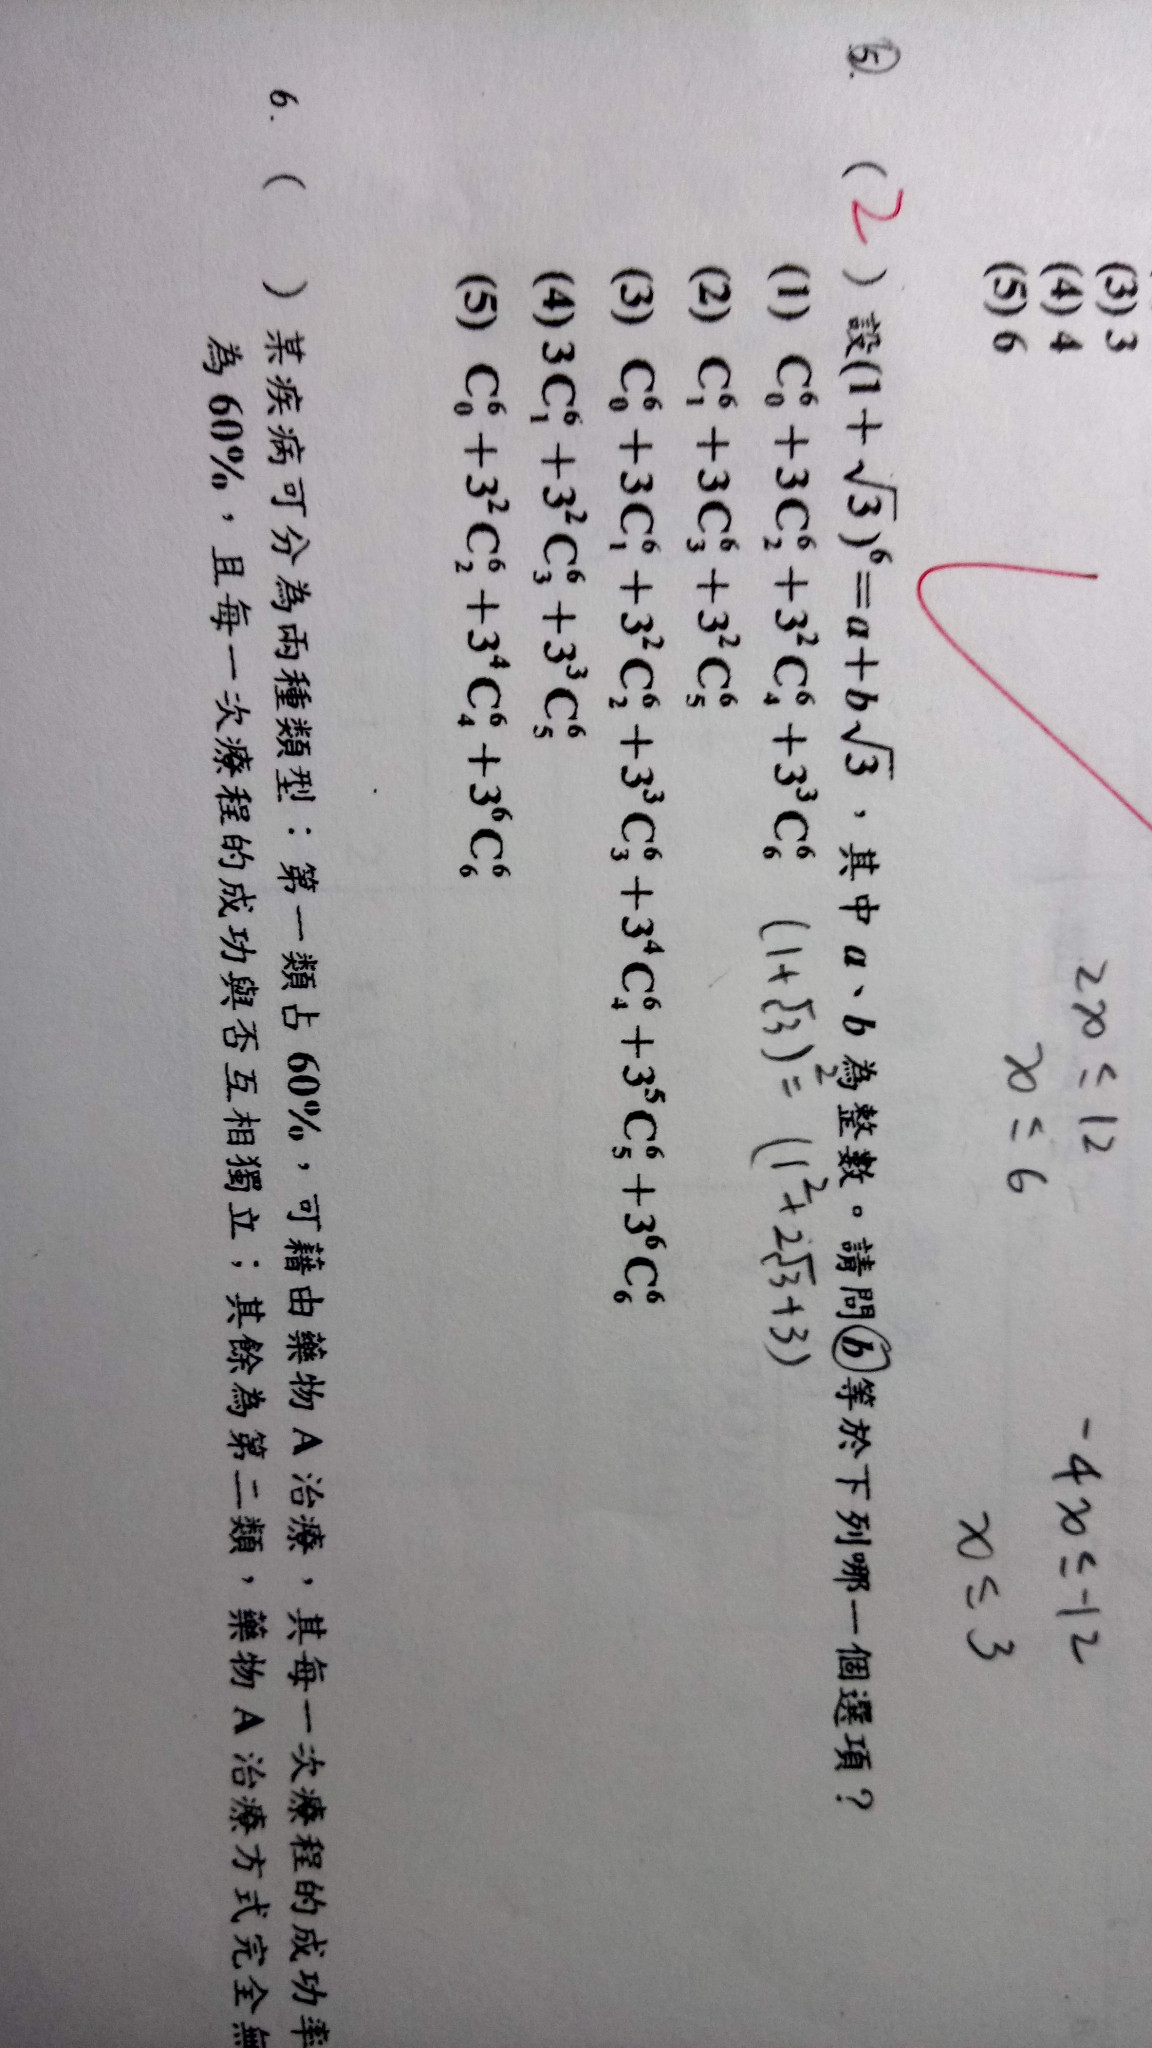 (3) 3
(4) 4
(5) 6
2x ≤ 12
x ≤ 6
-4x ≤ -12
x ≤ 3
5. ( 2 ) 設(1+√3)⁶=a+b√3，其中 a、b 為整數。請問 b 等於下列哪一個選項？
(1) C⁶₀+3C⁶₂+3²C⁶₄+3³C⁶₆
(1+√3)²= (1²+2√3+3)
(2) C⁶₁+3C⁶₃+3²C⁶₅
(3) C⁶₀+3C⁶₁+3²C⁶₂+3³C⁶₃+3⁴C⁶₄+3⁵C⁶₅+3⁶C⁶₆
(4) 3C⁶₁+3²C⁶₃+3³C⁶₅
(5) C⁶₀+3²C⁶₂+3⁴C⁶₄+3⁶C⁶₆
6. ( ) 某疾病可分為兩種類型：第一類占 60%，可藉由藥物 A 治療，其每一次療程的成功率
為 60%，且每一次療程的成功與否互相獨立；其餘為第二類，藥物 A 治療方式完全無